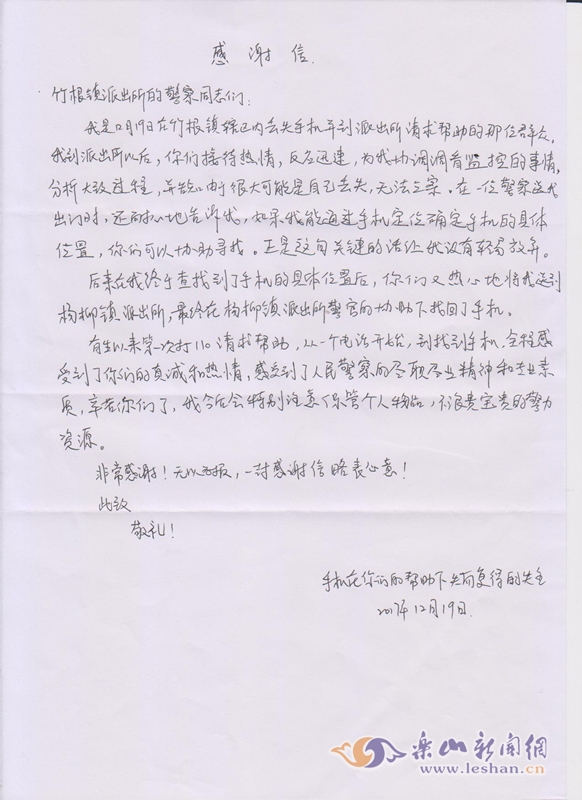 感谢信.
竹根镇派出所的警察同志们:
我是12月19日在竹根镇辖区内丢失手机并到派出所请求帮助的那位群众,
我到派出所以后,你们接待热情,反应迅速,为我协调调看监控的事情,
分析大致过程,并告知由于很大可能是自己丢失,无法立案,在一位警察送我
出门时,还耐心地告诉我,如果我能通过手机定位确定手机的具体
位置,你们可以协助寻找。正是这句关键的话让我没有轻易放弃。
后来在我终于查找到了手机的具体位置后,你们又热心地将我送到
杨柳镇派出所,最终在杨柳镇派出所警官的协助下找回了手机。
有生以来第一次打110请求帮助,从一个电话开始,到找到手机,全程感
受到了你们的真诚和热情,感受到了人民警察的尽职尽业精神和专业素
质,辛苦你们了,我今后会特别注意保管个人物品,不浪费宝贵的警力
资源。
非常感谢!无以为报,一封感谢信略表心意!
此致
敬礼!
手机在你们的帮助下失而复得的失主
2017年12月19日.
乐山新闻網
www.leshan.cn